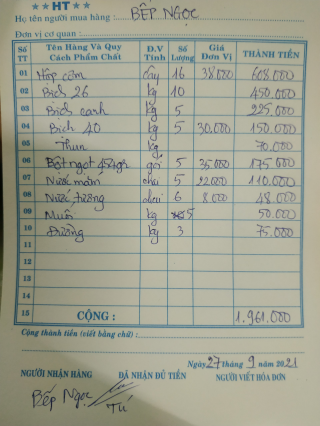 ★★HT★★
Họ tên người mua hàng: BẾP NGỌC
Đơn vị cơ quan:
Số TT Tên Hàng Và Quy Cách Phẩm Chất Đ.V Tính Số Lượng Giá Đơn Vị THÀNH TIỀN
01 Hộp cơm cây 16 38000 608.000
02 Bịch 26 kg 10 450.000
03 Bịch canh kg 5 225.000
04 Bịch 40 kg 5 30.000 150.000
05 Thun kg 70.000
06 Bột ngọt 454gr gói 5 35000 175.000
07 Nước mắm chai 5 22000 110.000
08 Nước tương chai 6 8000 48.000
09 Muối kg 5 50.000
10 Đường kg 3 75.000
11
12
13
14
15 CỘNG: 1.961.000
Cộng thành tiền (viết bằng chữ):
Ngày 27 tháng 9 năm 2021
NGƯỜI NHẬN HÀNG ĐÃ NHẬN ĐỦ TIỀN NGƯỜI VIẾT HÓA ĐƠN
Bếp Ngọc Tú